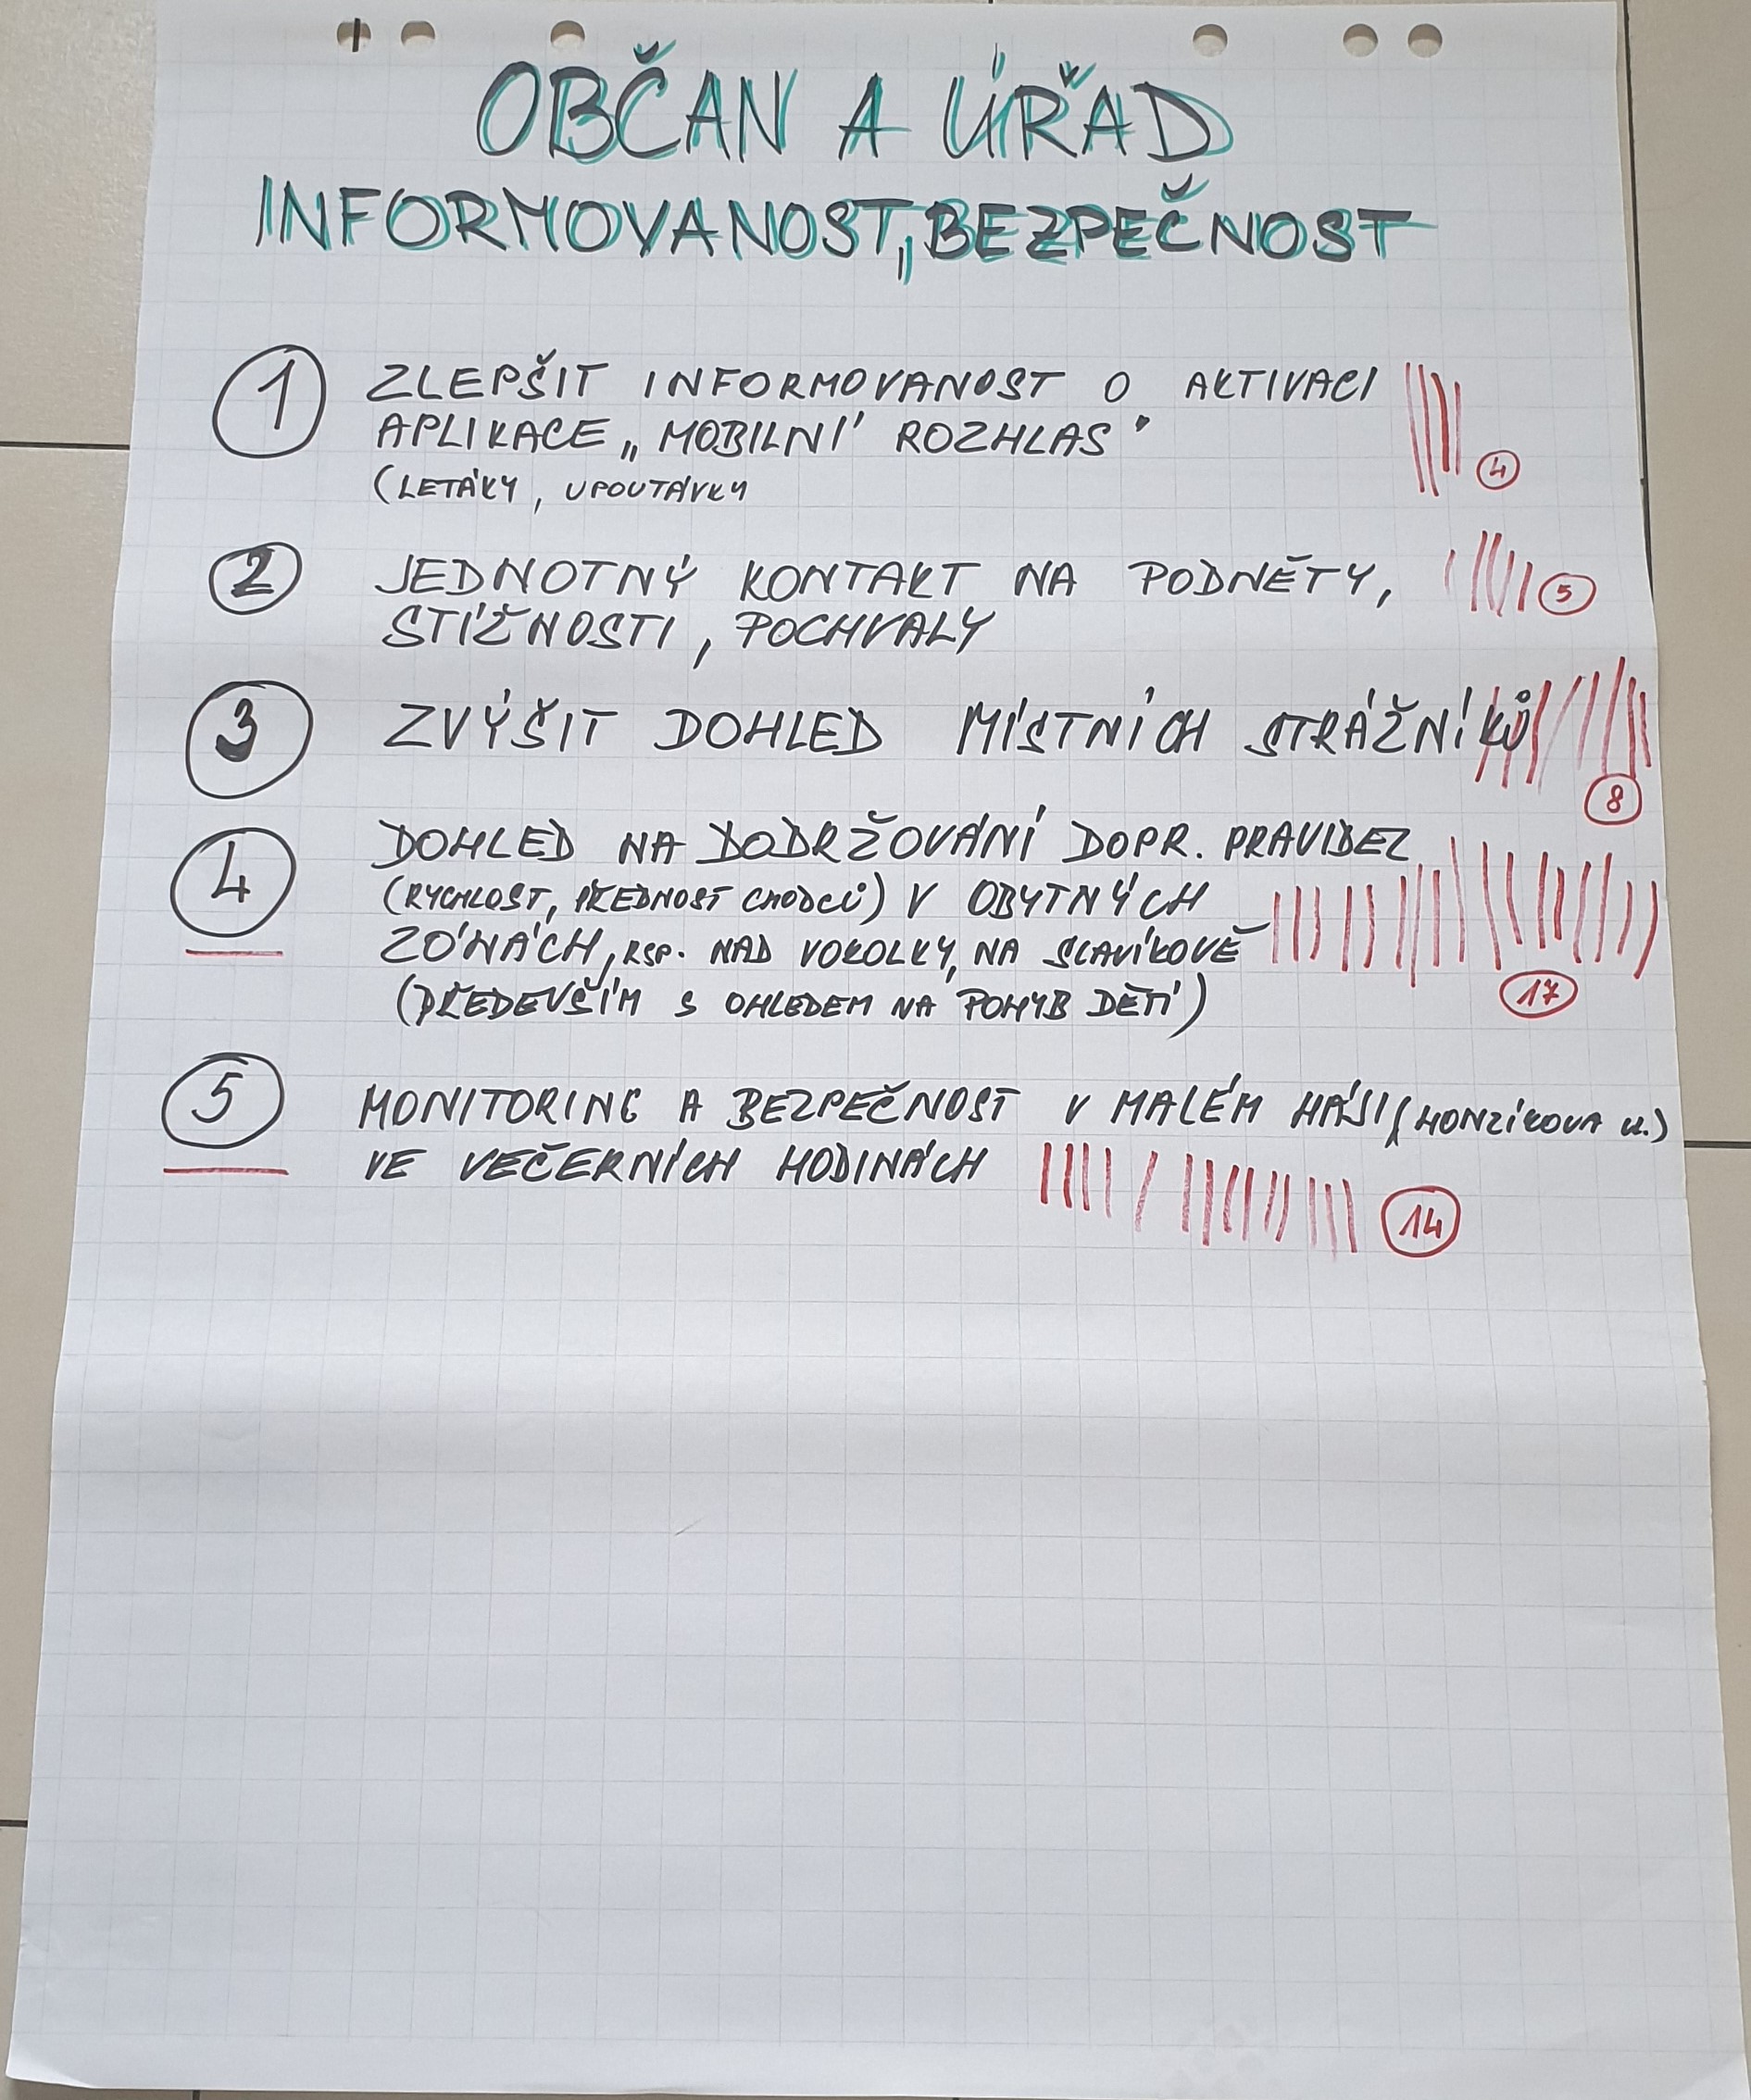 OBČAN A ÚŘAD
INFORMOVANOST, BEZPEČNOST
1 ZLEPŠIT INFORMOVANOST O AKTIVACI
APLIKACE „MOBILNÍ ROZHLAS"
(LETÁKY, UPOUTÁVKY
4
2 JEDNOTNÝ KONTAKT NA PODNĚTY,
STÍŽNOSTI, POCHVALY
5
3 ZVÝŠIT DOHLED MÍSTNÍCH STRÁŽNÍKŮ
8
4 DOHLED NA DODRŽOVÁNÍ DOPR. PRAVIDEL
(RYCHLOST, PŘEDNOST CHODCŮ) V OBYTNÝCH
ZÓNÁCH, RSP. NAD VOKOLKY, NA SLAVÍKOVĚ
(PŘEDEVŠÍM S OHLEDEM NA POHYB DĚTÍ)
17
5 MONITORING A BEZPEČNOST V MALÉM HÁJI (HONZÍKOVA U.)
VE VEČERNÍCH HODINÁCH
14